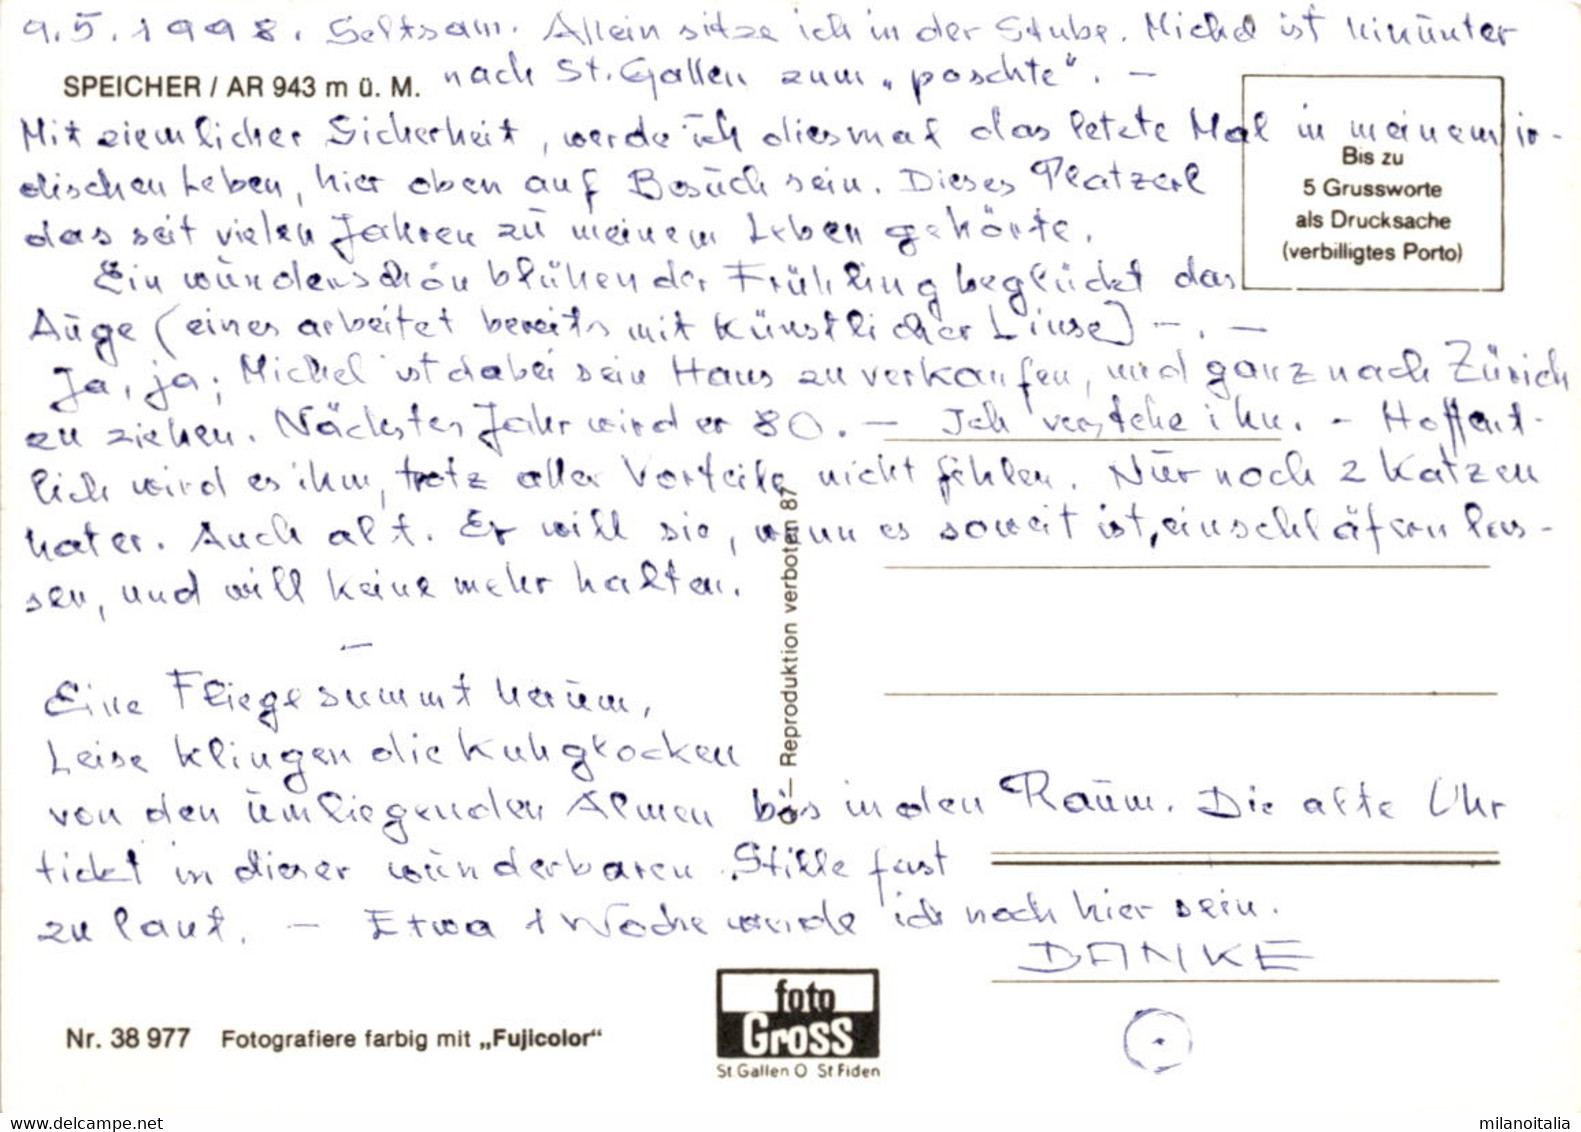 9.5.1998. Seltsam. Allein sitze ich in der Stube. Michel ist hinunter
SPEICHER / AR 943 m ü. M.
nach St. Gallen zum „poschte". –
Mit ziemlicher Sicherheit, werde ich diesmal das letzte Mal in meinem ir-
dischen Leben, hier oben auf Besuch sein. Dieses Platzerl
das seit vielen Jahren zu meinem Leben gehörte.
Ein wunderschön blühender Frühling beglückt das
Auge (eines arbeitet bereits mit künstlicher Linse) –.–
Ja, ja; Michel ist dabei sein Haus zu verkaufen, und ganz nach Zürich
zu ziehen. Nächstes Jahr wird er 80. – Ich verstehe ihn. – Hoffent-
lich wird es ihm, trotz aller Vorteile nicht fehlen. Nur noch 2 Katzen
hat er. Auch alt. Er will sie, wenn es soweit ist, einschläfern las-
sen, und will keine mehr halten.
–
Eine Fliege summt herum,
Leise klingen die Kuhglocken
von den umliegenden Almen bis in den Raum. Die alte Uhr
tickt in dieser wunderbaren Stille fast
zu laut. – Etwa 1 Woche werde ich noch hier sein.
DANKE
Bis zu
5 Grussworte
als Drucksache
(verbilligtes Porto)
© – Reproduktion verboten 87
Nr. 38 977 Fotografiere farbig mit „Fujicolor"
foto
Gross
St Gallen O St Fiden
www.delcampe.net
milanoitalia